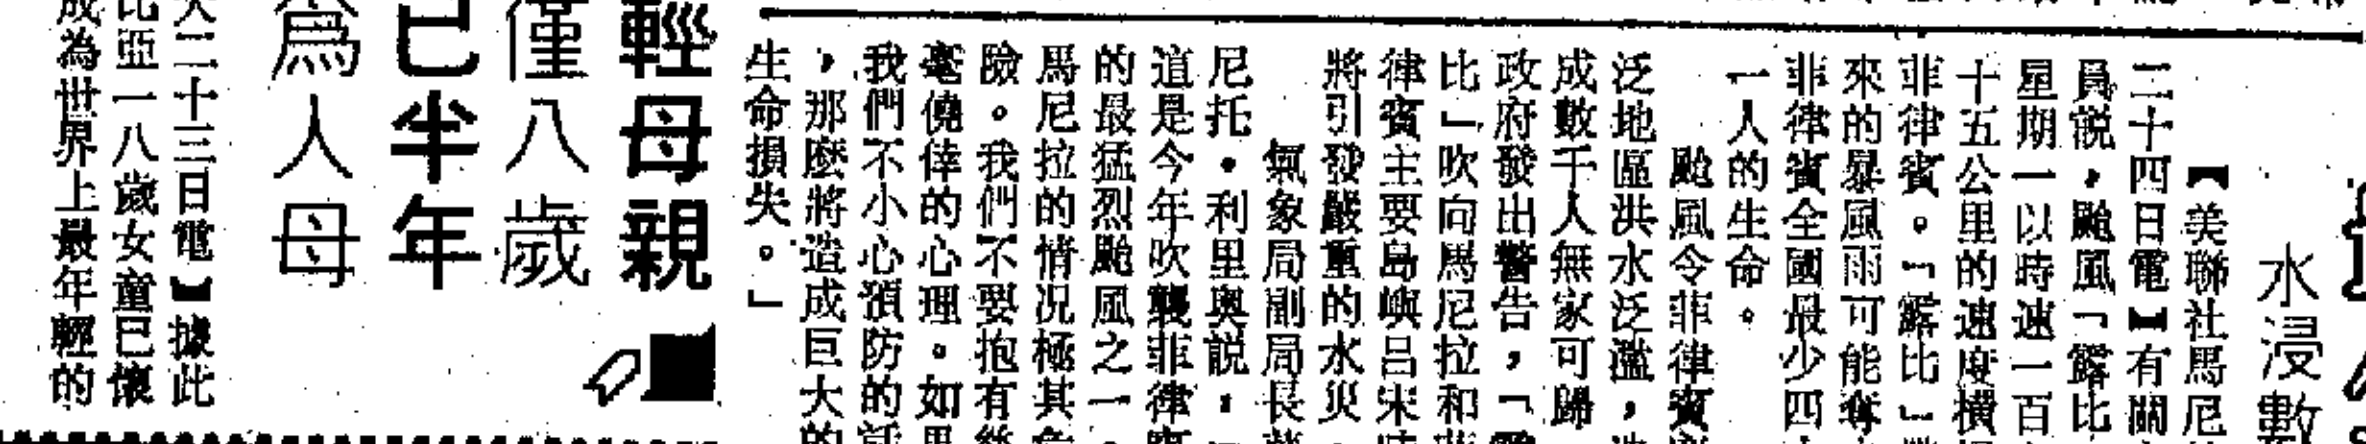 水浸數
【美聯社馬尼
二十四日電】有關
員説，颱風「露比
星期一以時速一百
十五公里的速度橫
菲律賓。「露比」
來的暴風雨可能奪
菲律賓全國最少四
一人的生命。
颱風令菲律賓
泛地區洪水泛濫，
成數千人無家可歸
政府發出警告，「露
比」吹向馬尼拉和
律賓主要島嶼呂宋
將引發嚴重的水災
氣象局副局長
尼托・利里奧説，
這是今年吹襲菲律賓
的最猛烈颱風之一。
馬尼拉的情况極其危
險。我們不要抱有絲
毫僥倖的心理。如果
我們不小心預防的話
，那麼將造成巨大的
生命損失。」
輕母親
僅八歲
已半年
為人母
大二十三日電】據此
比亞一八歲女童已懷
成為世界上最年輕的